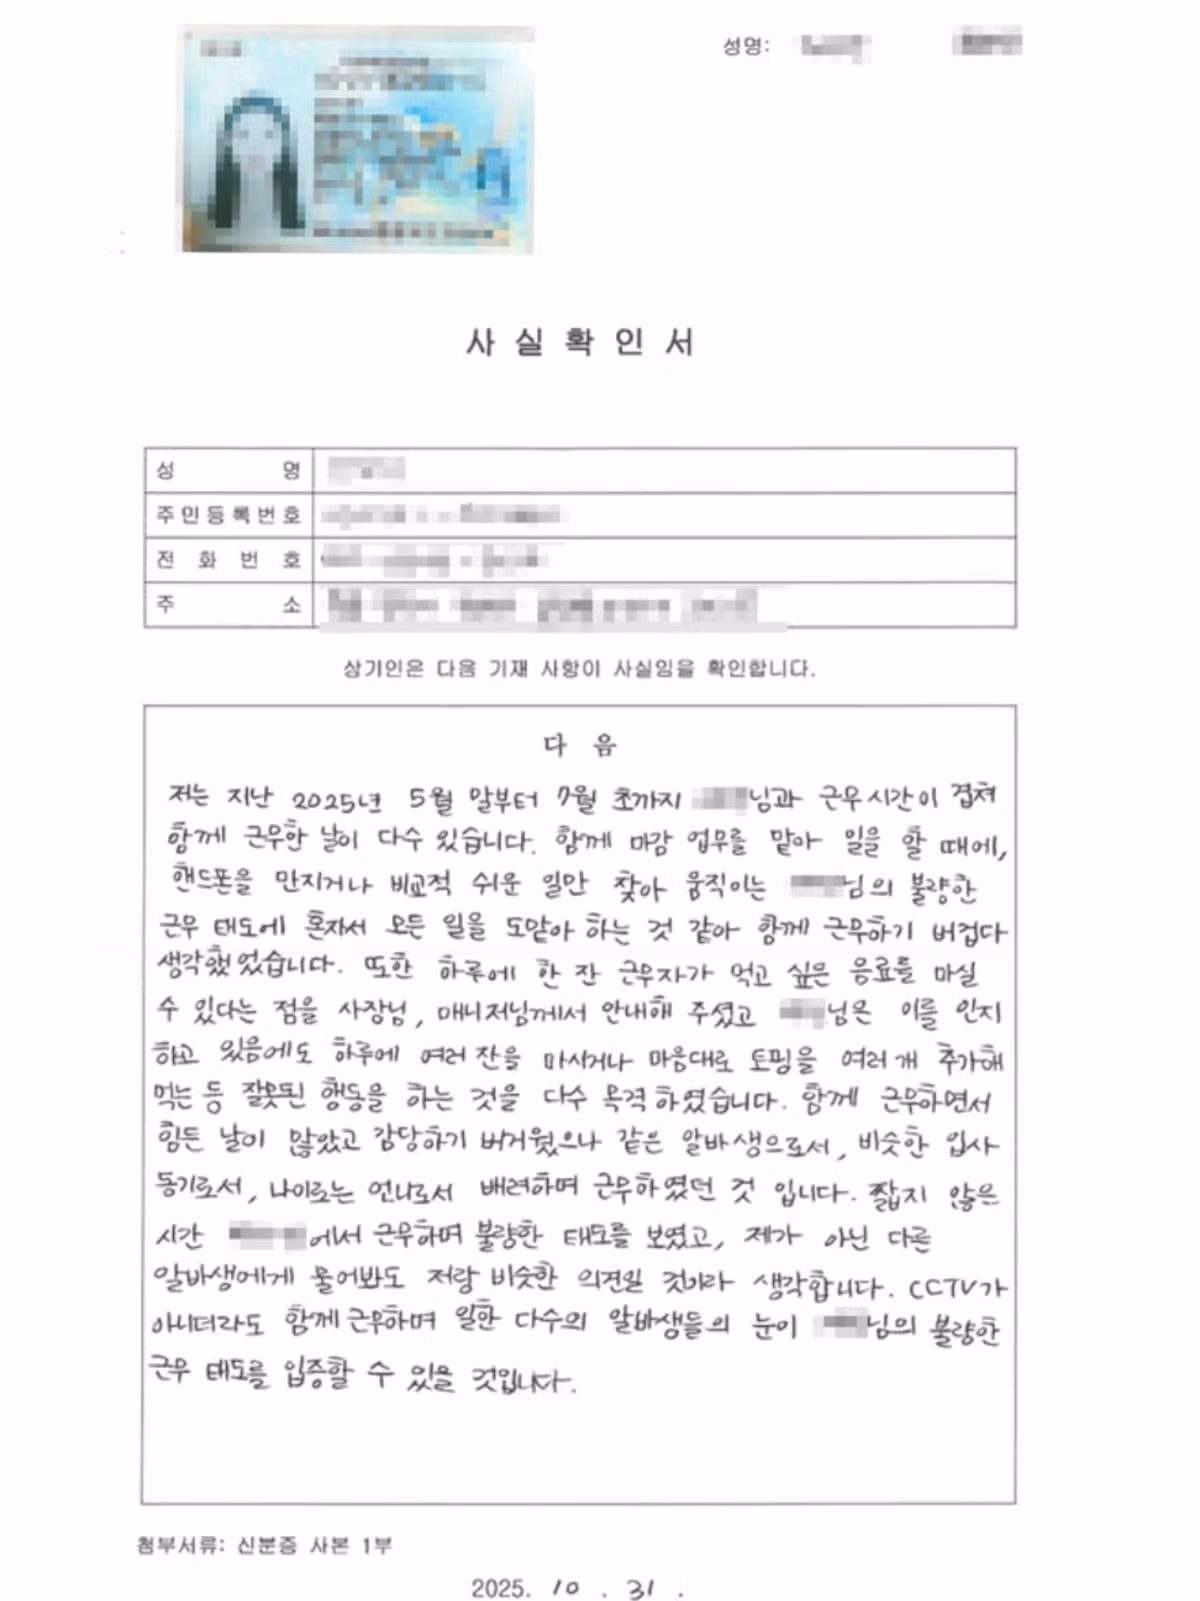 성명:
사 실 확 인 서
성 명
주민등록번호
전 화 번 호
주 소
상기인은 다음 기재 사항이 사실임을 확인합니다.
다 음
저는 지난 2025년 5월 말부터 7월 초까지 님과 근무시간이 겹쳐
함께 근무한 날이 다수 있습니다. 함께 마감 업무를 맡아 일을 할 때에,
핸드폰을 만지거나 비교적 쉬운 일만 찾아 움직이는 님의 불량한
근무 태도에 혼자서 모든 일을 도맡아 하는 것 같아 함께 근무하기 버겁다
생각했었습니다. 또한 하루에 한 잔 근무자가 먹고 싶은 음료를 마실
수 있다는 점을 사장님, 매니저님께서 안내해 주셨고 님은 이를 인지
하고 있음에도 하루에 여러 잔을 마시거나 마음대로 토핑을 여러 개 추가해
먹는 등 잘못된 행동을 하는 것을 다수 목격하였습니다. 함께 근무하면서
힘든 날이 많았고 감당하기 버거웠으나 같은 알바생으로서, 비슷한 입사
동기로서, 나이로는 언니로서 배려하며 근무하였던 것 입니다. 짧지 않은
시간 에서 근무하며 불량한 태도를 보였고, 제가 아닌 다른
알바생에게 물어봐도 저랑 비슷한 의견일 것이라 생각합니다. CCTV가
아니더라도 함께 근무하며 일한 다수의 알바생들의 눈이 님의 불량한
근무 태도를 입증할 수 있을 것입니다.
첨부서류: 신분증 사본 1부
2025. 10 . 31 .